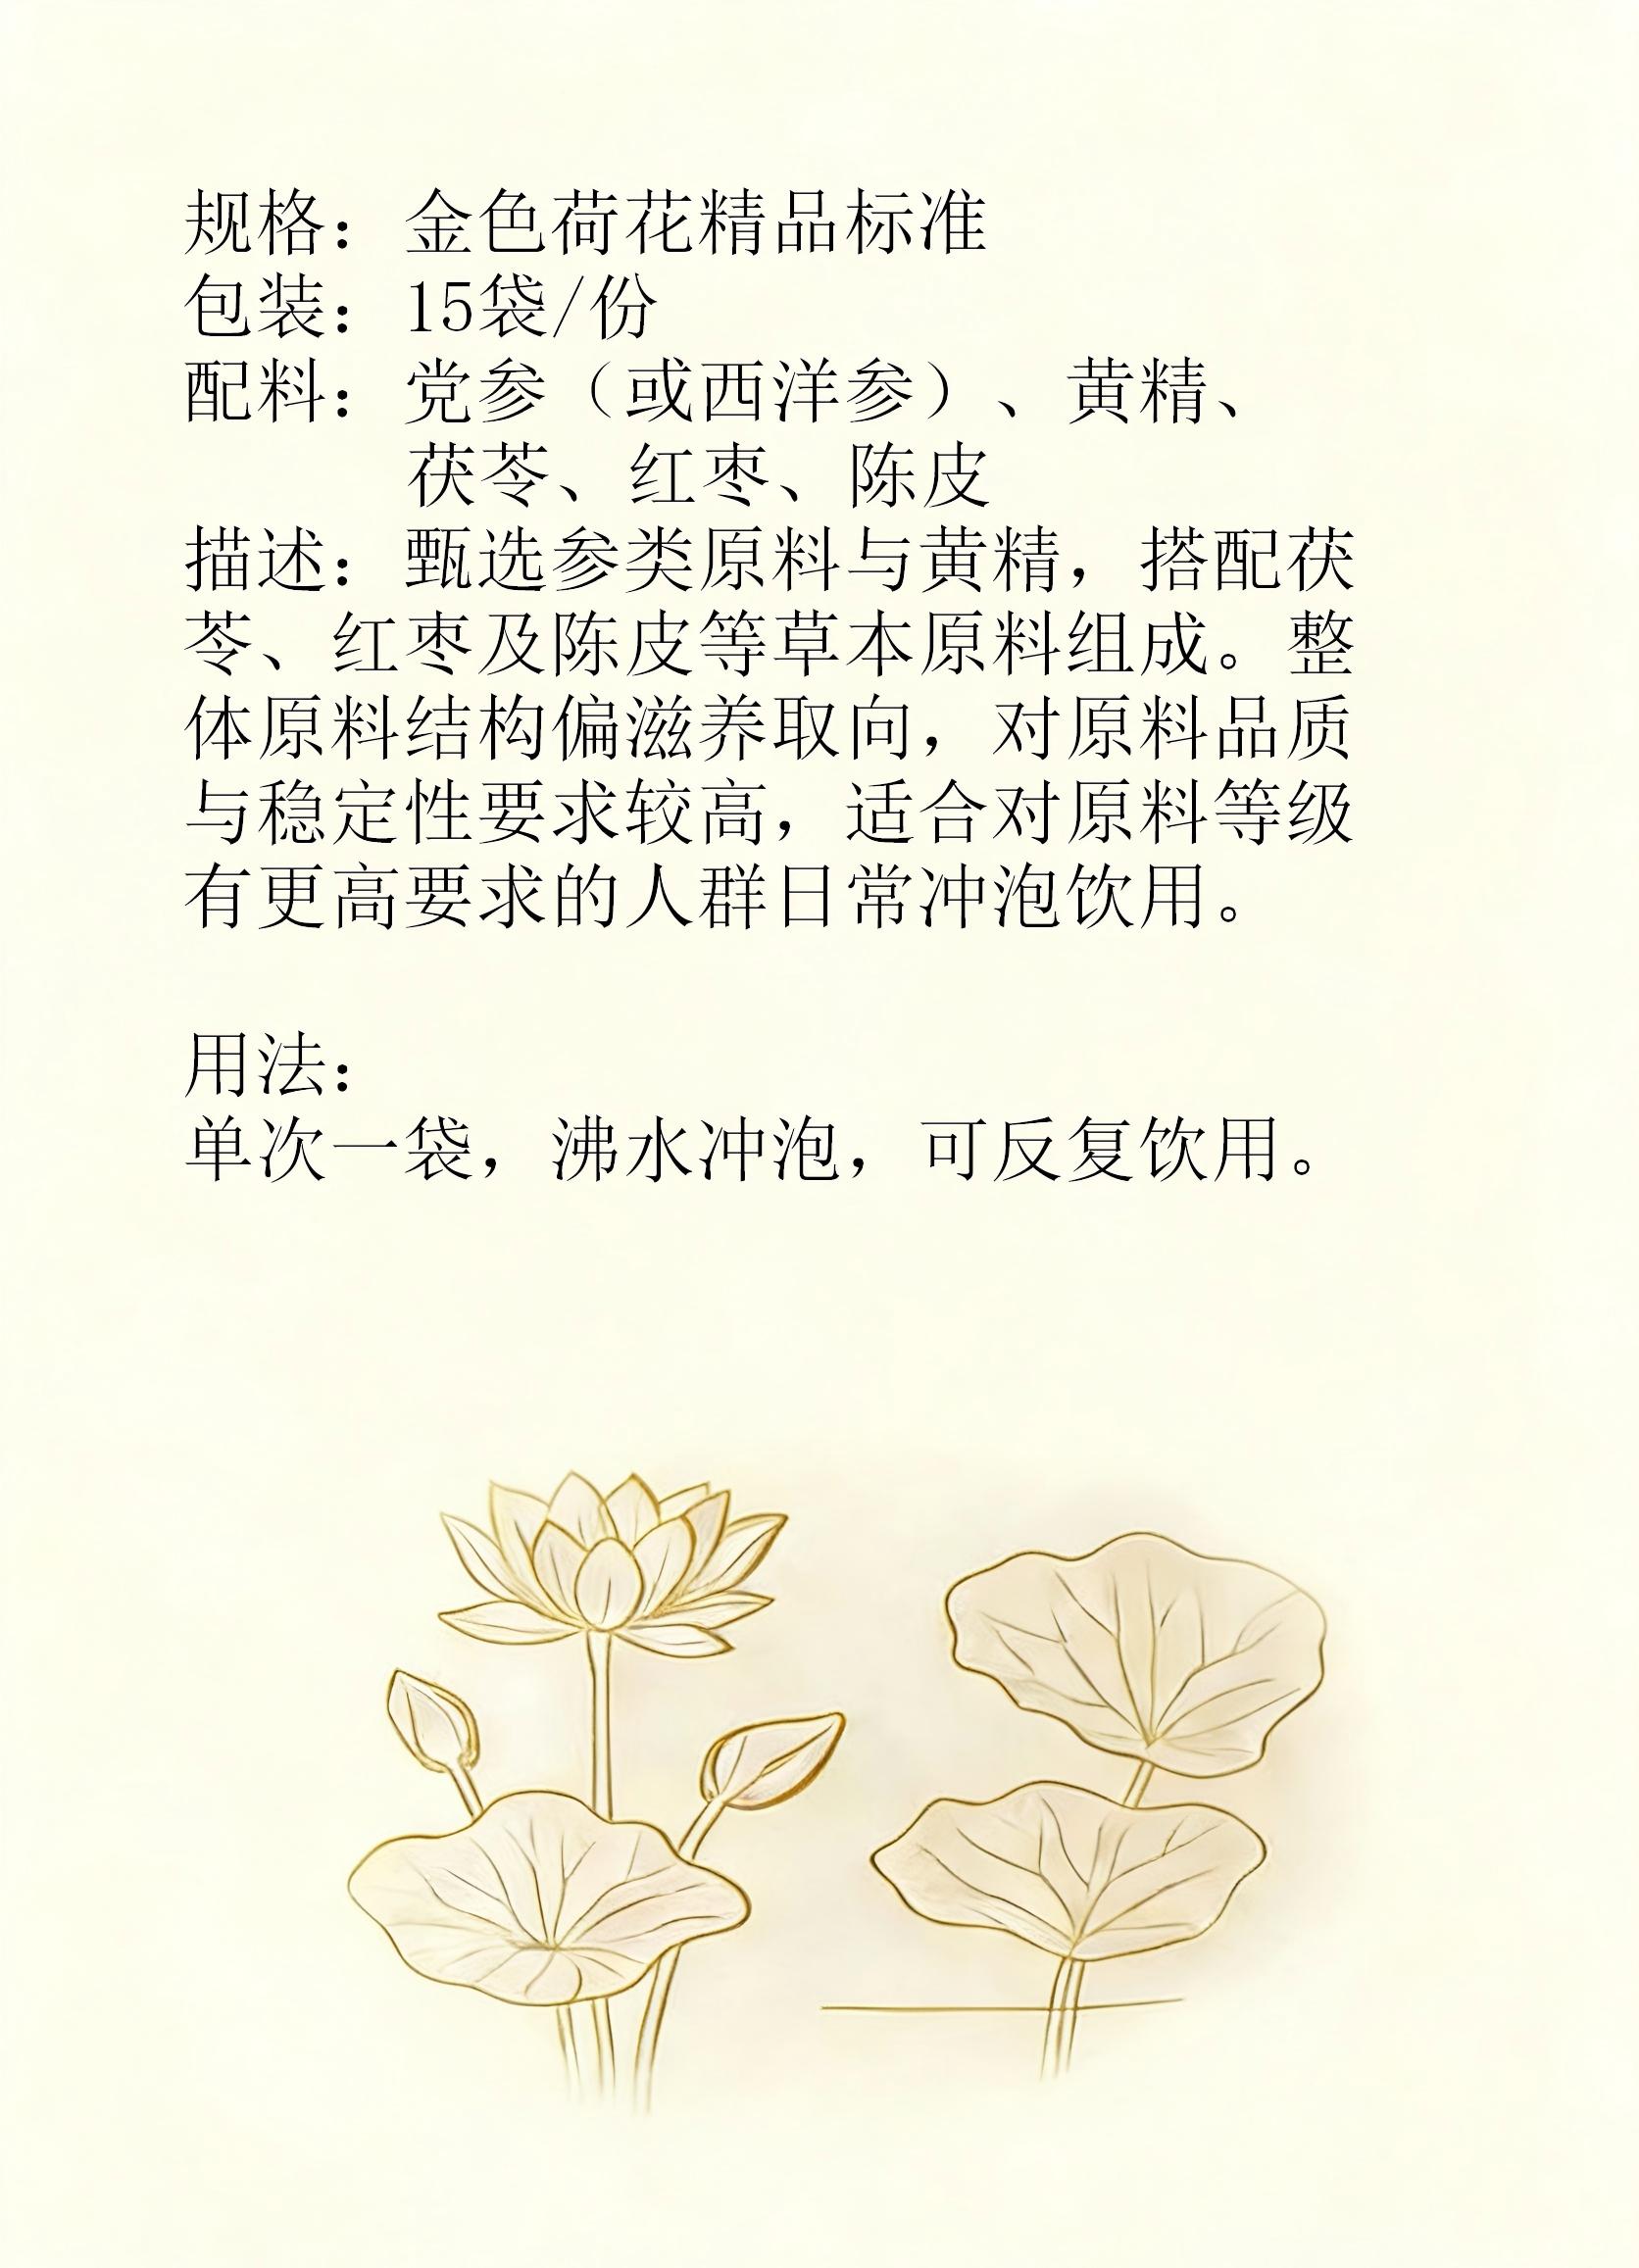 规格：金色荷花精品标准
包装：15袋/份
配料：党参（或西洋参）、黄精、
茯苓、红枣、陈皮
描述：甄选参类原料与黄精，搭配茯
苓、红枣及陈皮等草本原料组成。整
体原料结构偏滋养取向，对原料品质
与稳定性要求较高，适合对原料等级
有更高要求的人群日常冲泡饮用。
用法：
单次一袋，沸水冲泡，可反复饮用。